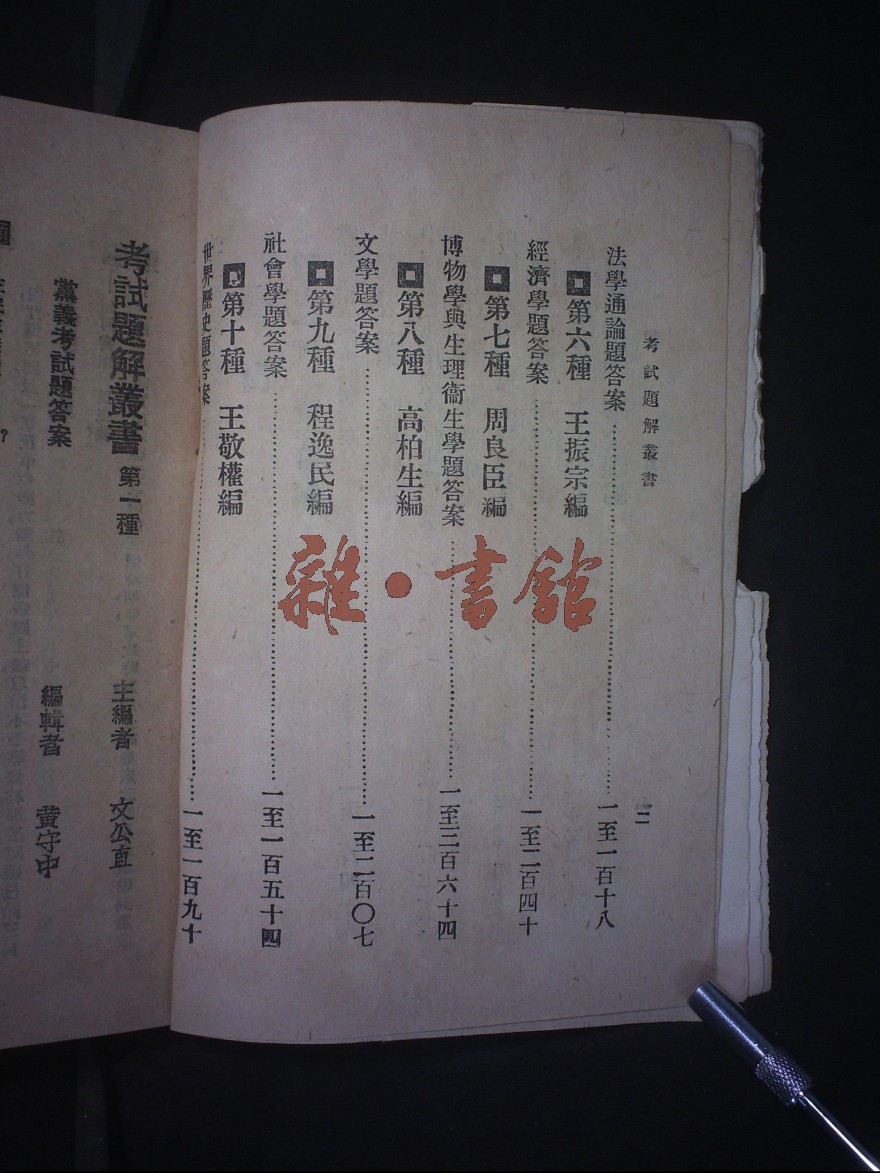 考試題解叢書
二
法學通論題答案………一至一百十八
第六種 王振宗編
經濟學題答案………一至二百四十
第七種 周良臣編
博物學與生理衞生學題答案………一至三百六十四
第八種 高柏生編
文學題答案………一至二百〇七
第九種 程逸民編
社會學題答案………一至一百五十四
第十種 王敬權編
世界歷史題答案………一至一百九十
考試題解叢書 第一種
主編者 文公直
黨義考試題答案
編輯者 黃守中
雜·書館